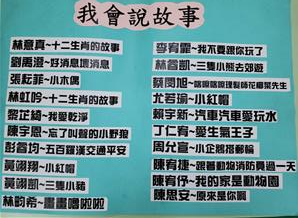 我會說故事
林意真~十二生肖的故事
劉禹澔~好消息壞消息
張耘菲~小木偶
林虹吟~十二生肖的故事
黎芷綺~我愛乾淨
陳宇恩~忘了叫聲的小野狼
彭睿均~五百羅漢交通平安
黃翊翔~小紅帽
黃翊凱~三隻小豬
林昀希~畫畫嘿啦啦
李宥霏~我不要跟你玩了
林睿凱~三隻小熊去郊遊
尤若瑜~小紅帽
賴宇新~汽車汽車愛玩水
丁仁宥~愛生氣王子
周允富~小企鵝搭郵輪
陳宥捷~跟著動物消防員過一天
陳宥伃~我的家是動物園
陳思安~原來是你啊